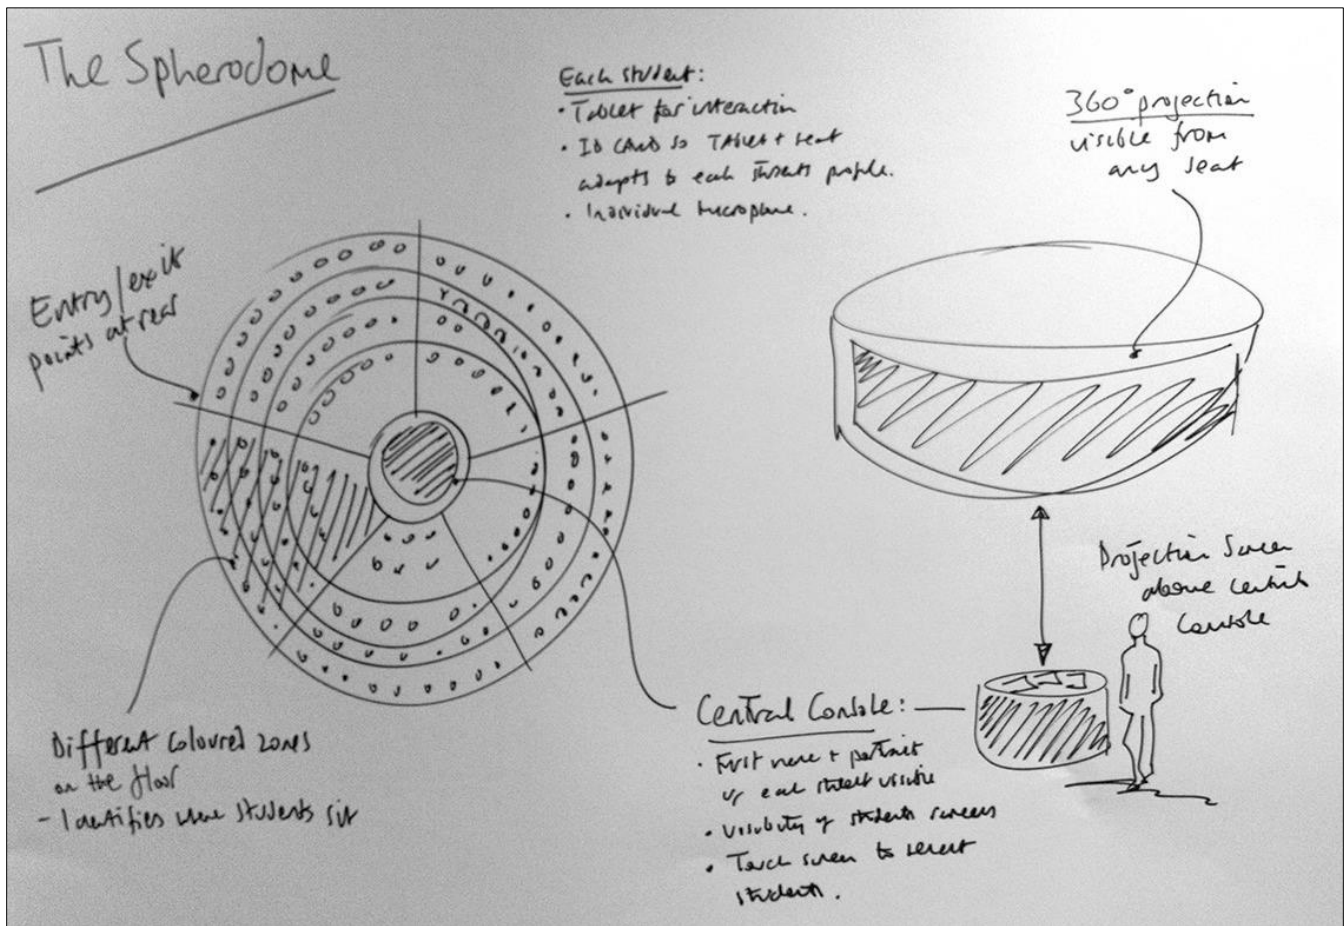 The Spherodome
Each student:
• Tablet for interaction
• ID card so Tablet + seat
adapts to each students profile.
• Individual microphone.
360° projection
visible from
any seat
Entry/exit
points at rear
Projection Screen
above central
Console
Different coloured zones
on the floor
- Identifies where students sit
Central Console:
• First name + portrait
of each student visible
• Visibility of students screens
• Touch screen to select
students.